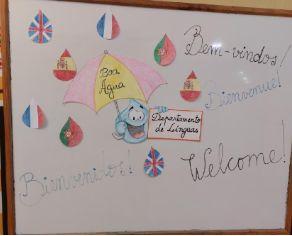 Bem-vindos!
Boa
Água
Bienvenue!
Departamento
de Línguas
Bienvenidos!
Welcome!